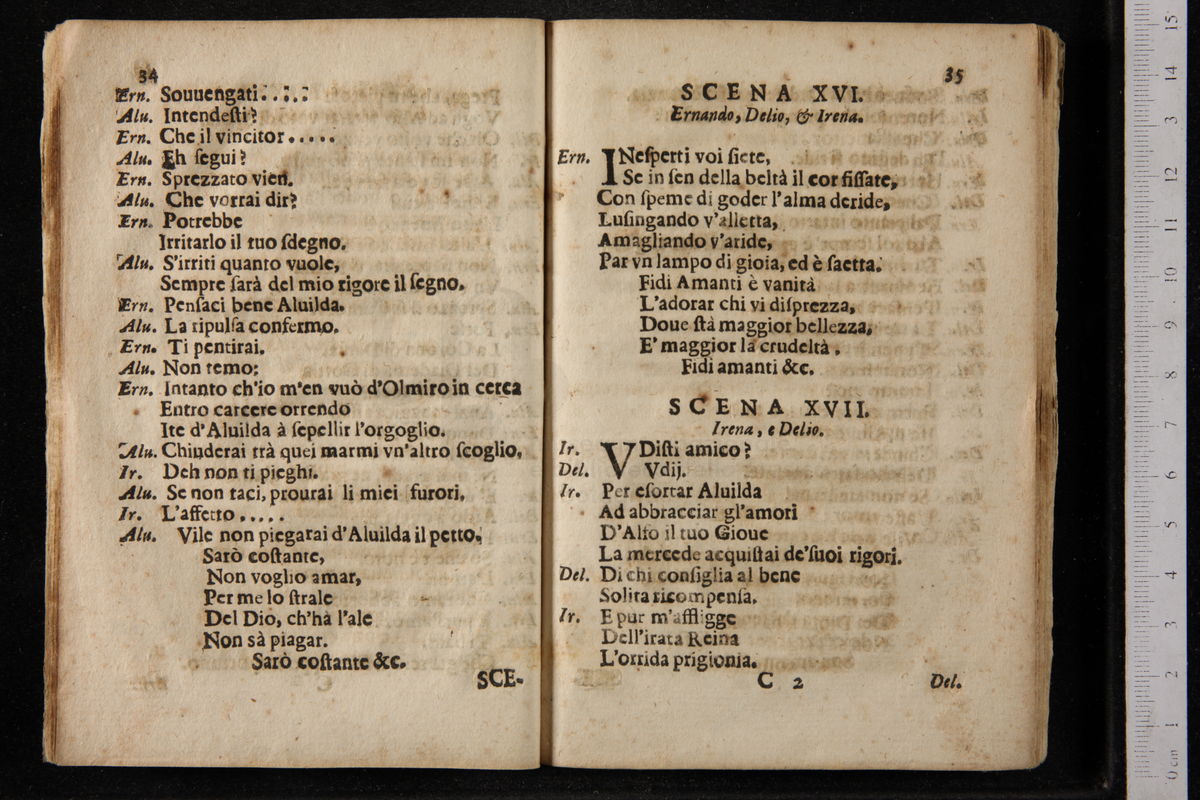 34
Ern. Souuengati. . . . .
Alu. Intendeſti?
Ern. Che il vincitor . . . . .
Alu. Eh ſegui?
Ern. Sprezzato vien.
Alu. Che vorrai dir?
Ern. Potrebbe
Irritarlo il tuo ſdegno.
Alu. S'irriti quanto vuole,
Sempre ſarà del mio rigore il ſegno.
Ern. Penſaci bene Aluilda.
Alu. La ripulſa confermo.
Ern. Ti pentirai.
Alu. Non temo:
Ern. Intanto ch'io m'en vuò d'Olmiro in cerca
Entro carcere orrendo
Ite d'Aluilda à ſepellir l'orgoglio.
Alu. Chinderai trà quei marmi vn'altro ſcoglio,
Ir. Deh non ti pieghi.
Alu. Se non taci, prourai li miei furori,
Ir. L'affetto . . . . .
Alu. Vile non piegarai d'Aluilda il petto,
Sarò coſtante,
Non voglio amar,
Per me lo ſtrale
Del Dio, ch'hà l'ale
Non sà piagar.
Sarò coſtante &c.
SCE-
35
SCENA XVI.
Ernando, Delio, & Irena.
Ern. INeſperti voi ſiete,
Se in ſen della beltà il cor fiſſate,
Con ſpeme di goder l'alma deride,
Luſingando v'alletta,
Amagliando v'aride,
Par vn lampo di gioia, ed è ſaetta.
Fidi Amanti è vanità
L'adorar chi vi diſprezza,
Doue ſtà maggior bellezza,
E' maggior la crudeltà.
Fidi amanti &c.
SCENA XVII.
Irena, e Delio.
Ir. VDiſti amico?
Del. Vdij.
Ir. Per eſortar Aluilda
Ad abbracciar gl'amori
D'Alfo il tuo Gioue
La mercede acquiſtai de'ſuoi rigori.
Del. Di chi conſiglia al bene
Solita ricompenſa.
Ir. E pur m'affligge
Dell'irata Reina
L'orrida prigionia.
C 2
Del.
15
14
13
12
11
10
9
8
7
6
5
4
3
2
1
0 cm